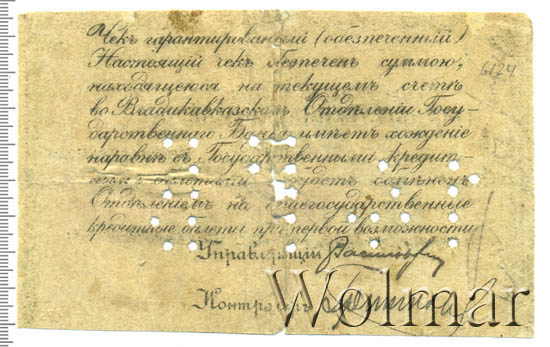 Чекъ гарантированный (обезпеченный)
Настоящій чек обезпечен суммою,
находящеюся на текущем счетѣ
во Владикавказском Отдѣленіи Госу-
дарственного Банка и имѣет хожденіе
наравнѣ съ Государственными кредит-
билетами
Отдѣленіем на общегосударственные
кредитные билеты при первой возможности
Управляющій
Контролеръ
6124
Wolmar